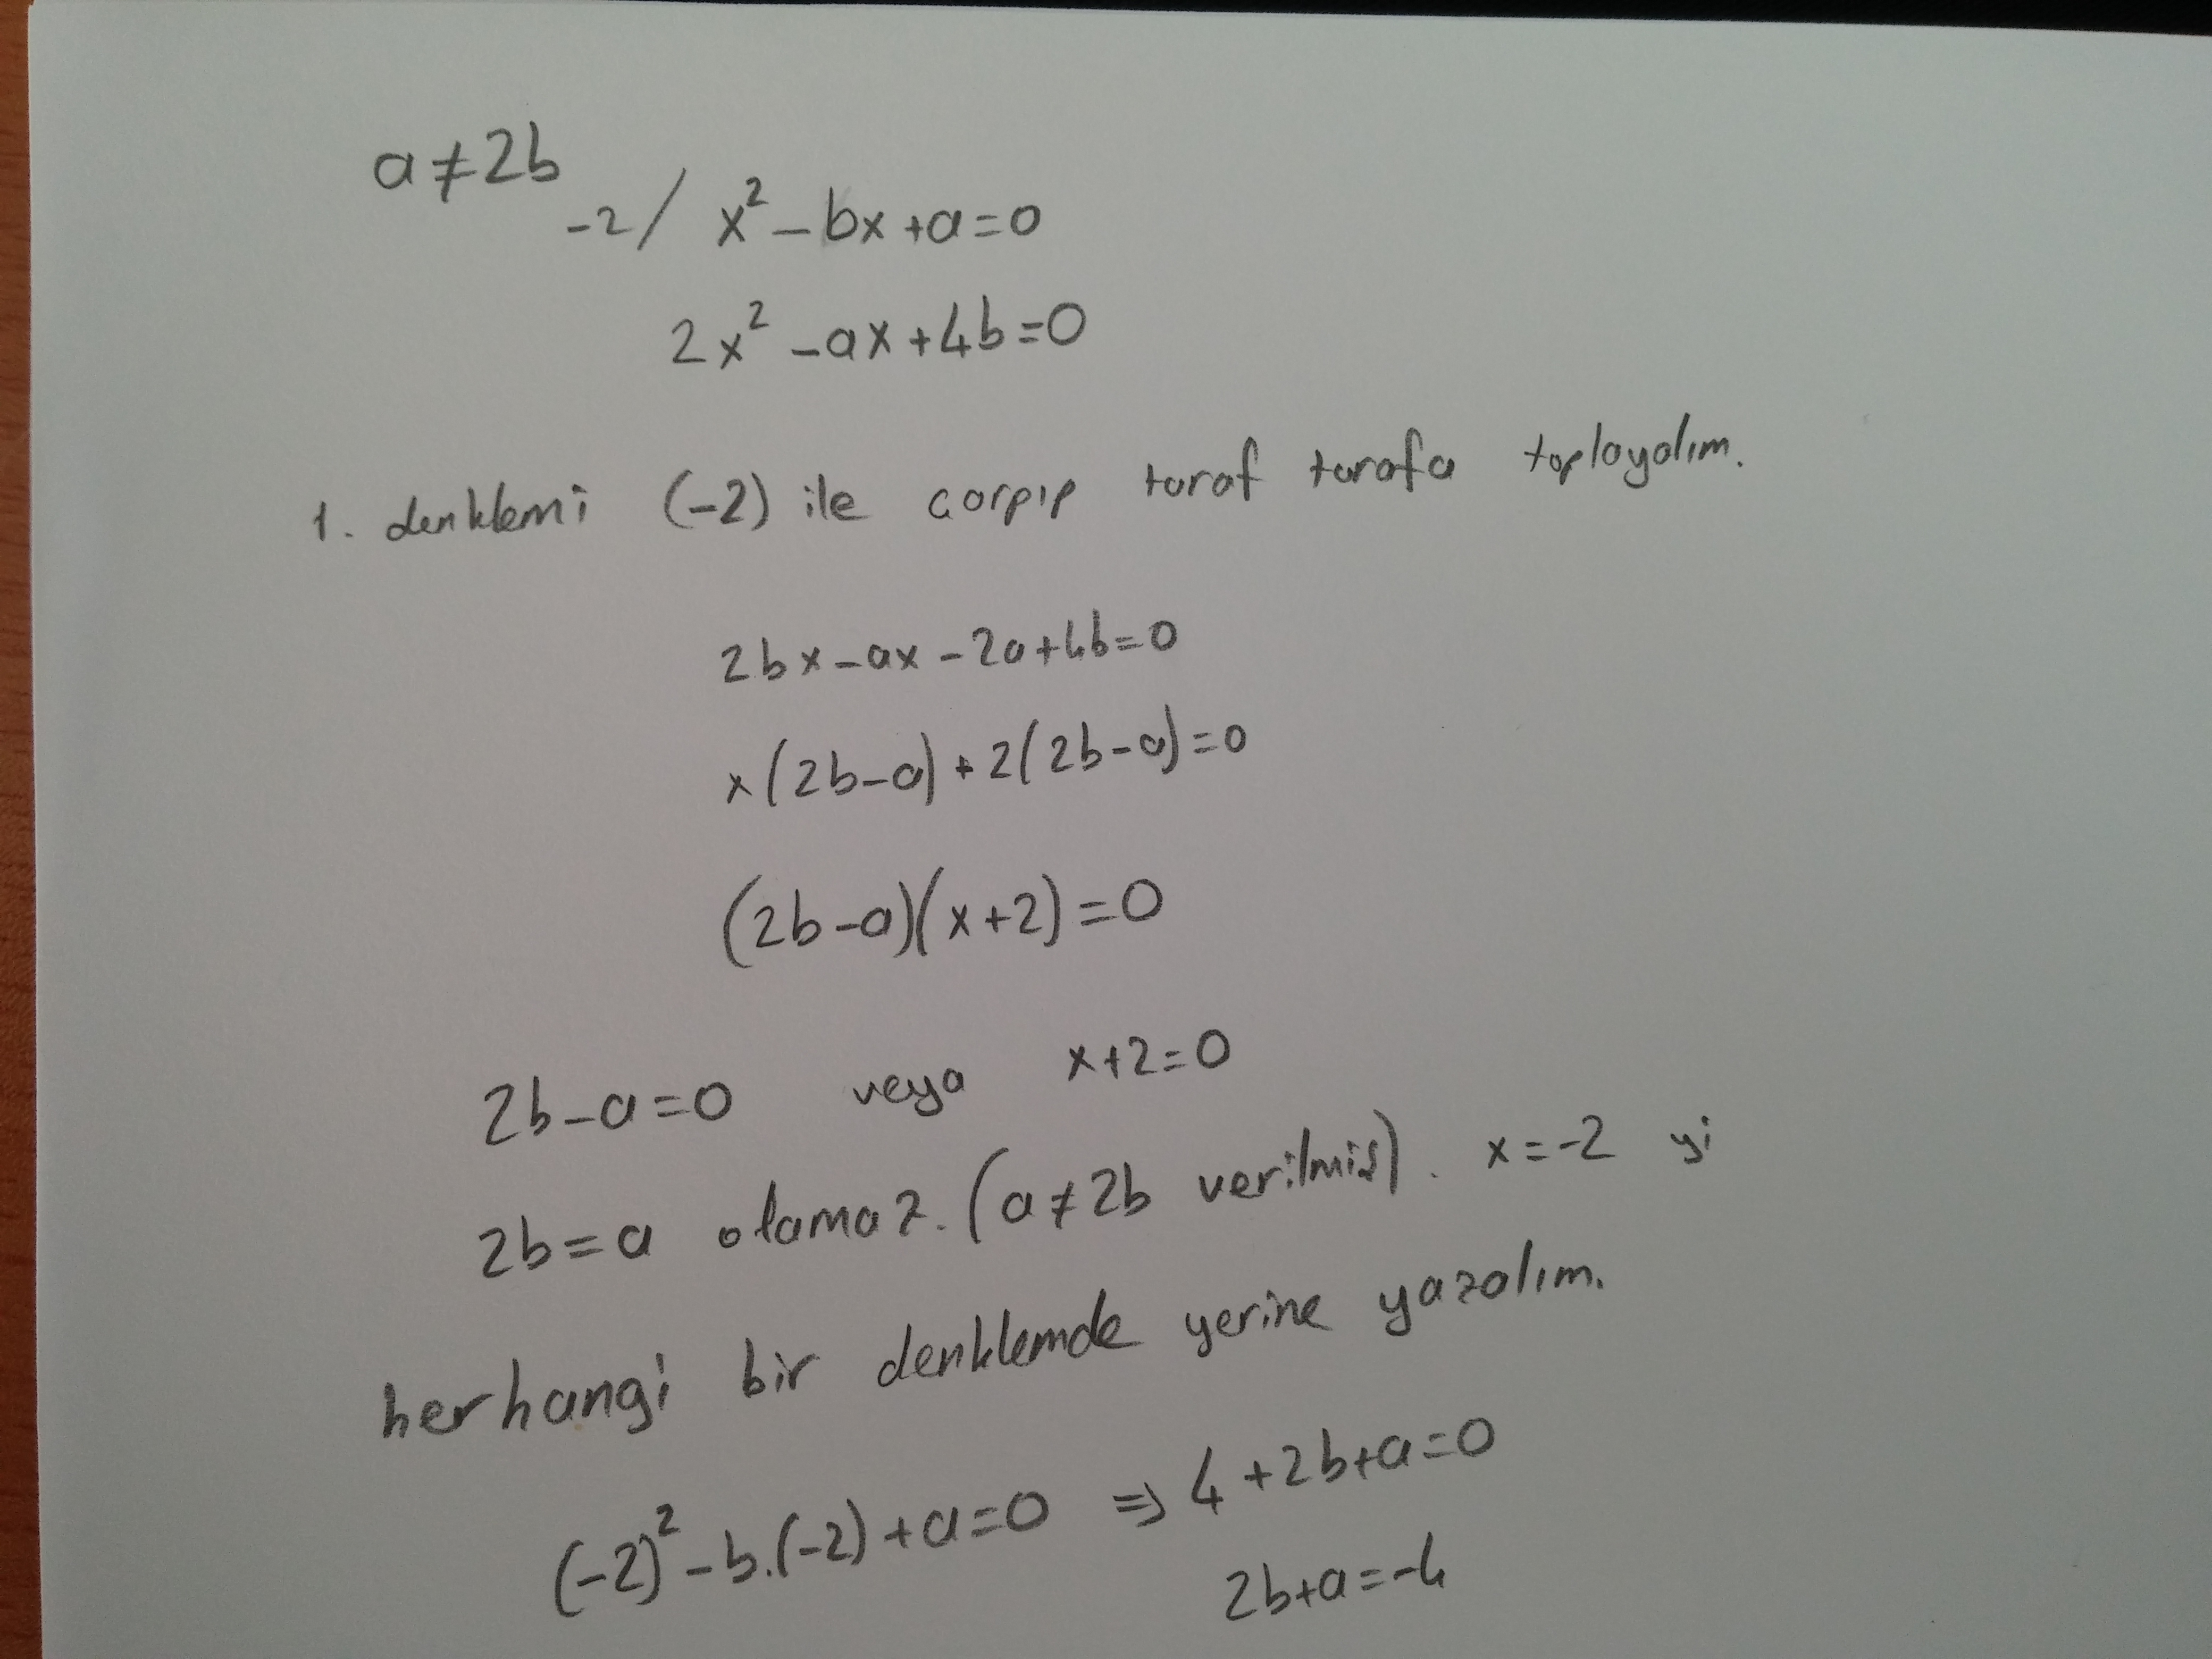 a≠2b
-2/ x² - bx + a = 0
2x² - ax + 4b = 0
1. denklemi (-2) ile çarpıp taraf tarafa toplayalım.
2bx - ax - 2a + 4b = 0
x(2b-a) + 2(2b-a) = 0
(2b-a)(x+2) = 0
2b-a=0 veya x+2=0
2b=a olamaz. (a≠2b verilmiş). x=-2 yi
herhangi bir denklemde yerine yazalım.
(-2)² - b.(-2) + a = 0 ⇒ 4 + 2b + a = 0
2b+a=-4